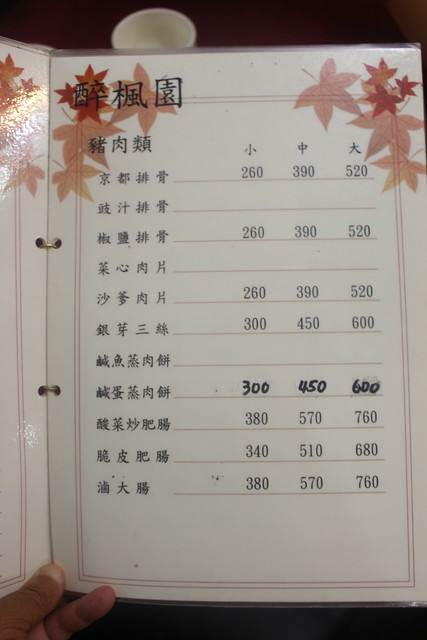 醉楓園
豬肉類 小 中 大
京都排骨 260 390 520
豉汁排骨
椒鹽排骨 260 390 520
菜心肉片
沙爹肉片 260 390 520
銀芽三絲 300 450 600
鹹魚蒸肉餅
鹹蛋蒸肉餅 300 450 600
酸菜炒肥腸 380 570 760
脆皮肥腸 340 510 680
滷大腸 380 570 760